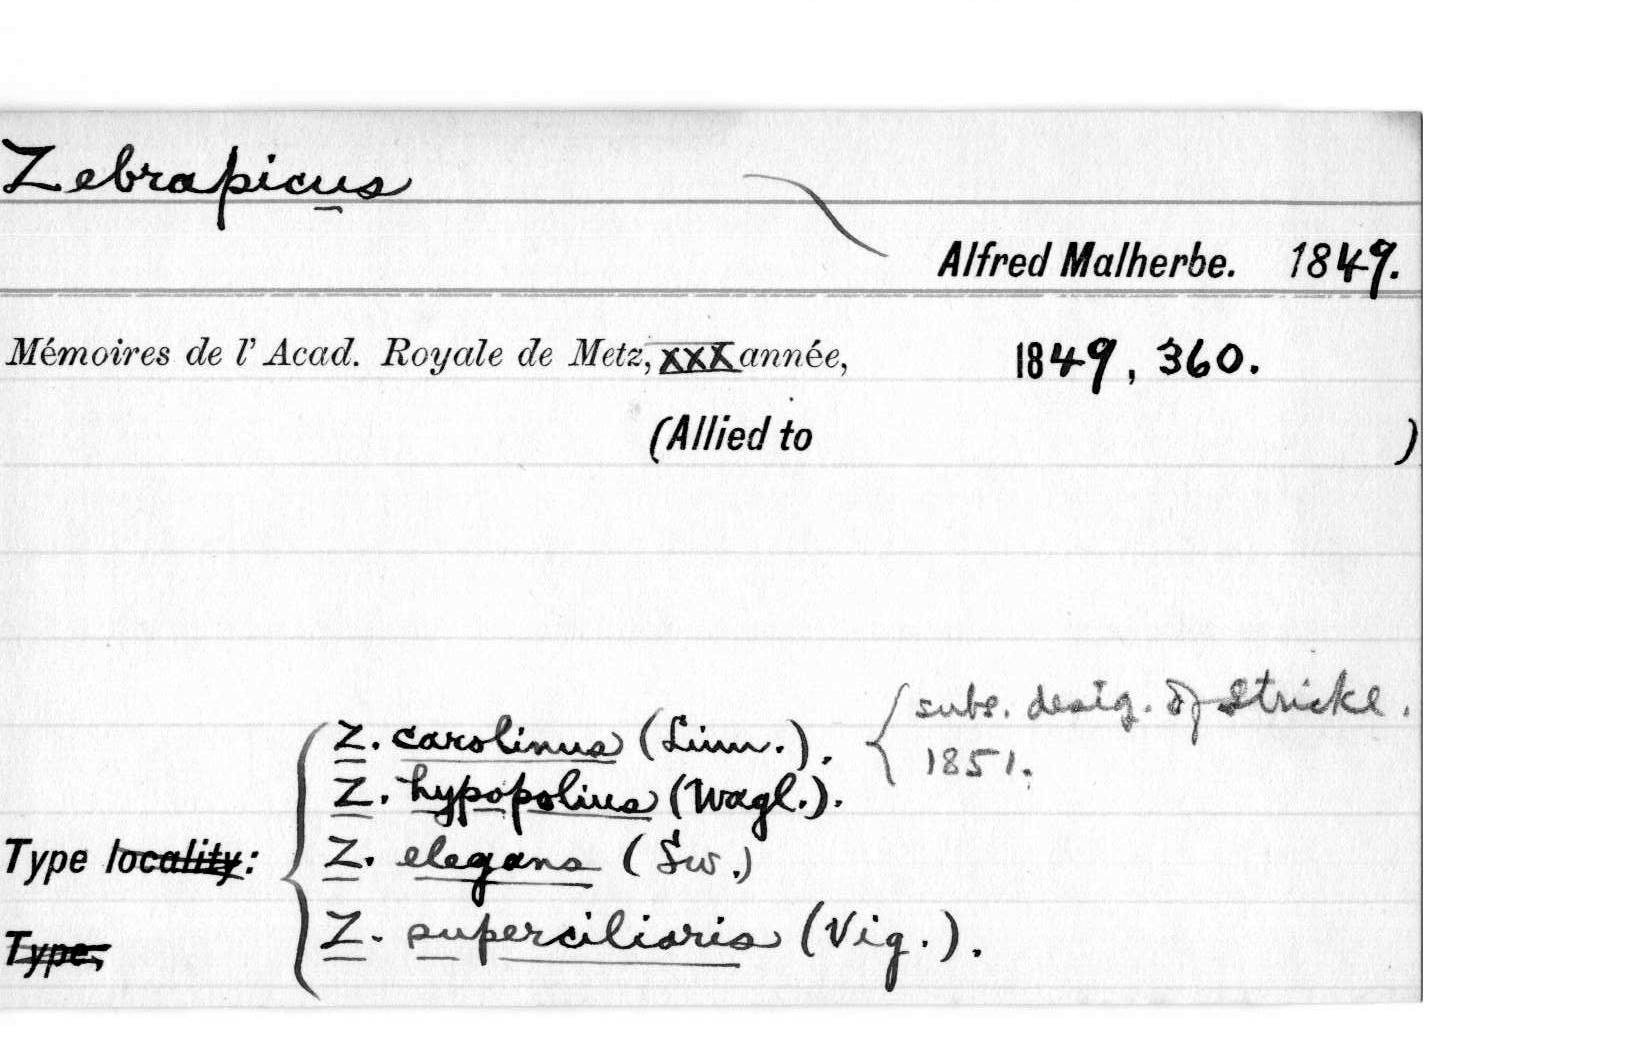 Zebrapicus
Alfred Malherbe. 1849.
Mémoires de l' Acad. Royale de Metz, XXX année, 1849, 360.
(Allied to )
subs. desig. of Strickl.
1851.
Z. carolinus (Linn.).
Z. hypopolius (Wagl.).
Type locality:
Z. elegans (Sw.)
Type;
Z. superciliaris (Vig.).